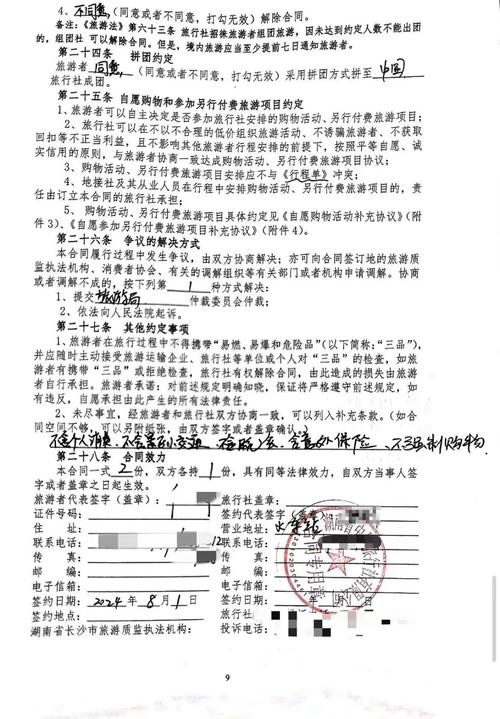 4、不同意(同意或者不同意，打勾无效)解除合同。
备注:《旅游法》第六十三条 旅行社招徕旅游者组团旅游，因未达到约定人数不能出团
的，组团社可以解除合同。但是，境内旅游应当至少提前七日通知旅游者。
第二十四条 拼团约定
旅游者 同意 (同意或者不同意，打勾无效)采用拼团方式拼至 中国
旅行社成团。
第二十五条 自愿购物和参加另行付费旅游项目约定
1、旅游者可以自主决定是否参加旅行社安排的购物活动、另行付费旅游项目；
2、旅行社可以在不以不合理的低价组织旅游活动、不诱骗旅游者、不获取
回扣等不正当利益，且不影响其他旅游者行程安排的前提下，按照平等自愿、诚
实信用的原则，与旅游者协商一致达成购物活动、另行付费旅游项目协议；
3、购物活动、另行付费旅游项目安排应不与《行程单》冲突；
4、地接社及其从业人员在行程中安排购物活动、另行付费旅游项目的，责
任由订立本合同的旅行社承担；
5、购物活动、另行付费旅游项目具体约定见《自愿购物活动补充协议》(附
件3)、《自愿参加另行付费旅游项目补充协议》(附件4)。
第二十六条 争议的解决方式
本合同履行过程中发生争议，由双方协商解决；亦可向合同签订地的旅游质
监执法机构、消费者协会、有关的调解组织等有关部门或者机构申请调解。协商
或者调解不成的，按下列第 1 种方式解决：
1、提交 旅游局 仲裁委员会仲裁；
2、依法向人民法院起诉。
第二十七条 其他约定事项
1、旅游者在旅行过程中不得携带“易燃、易爆和危险品”(以下简称：“三品”)，
并应随时主动接受旅游运输企业、旅行社等单位或个人对“三品”的检查，如旅
游者有携带“三品”或拒绝检查，旅行社有权解除合同，由此造成的损失由旅游
者自行承担。旅游者承诺：对前述规定明确知晓，保证将严格遵守前述规定，如
有违反，自愿承担由此产生的所有法律责任。
2、未尽事宜，经旅游者和旅行社双方协商一致，可以列入补充条款。(如合
同空间不够，可以另附纸张，由双方签字或者盖章确认。)
不含个人消费 含意外保险
第二十八条 合同效力
本合同一式 2 份，双方各持 1 份，具有同等法律效力，自双方当事人签
字或者盖章之日起生效。
旅游者代表签字(盖章)： 旅行社盖章：
证件号码： 签约代表签字(盖章)
住 址： 营业地址：火车站
联系电话： 联系电话：
传 真： 传 真：
邮 编： 邮 编：
电子信箱： 电子信箱：
签约日期：2024年8月1日 签约日期： 年
签约地点： 旅行社
湖南省长沙市旅游质监执法机构： 投诉电话：
合同专用章
9